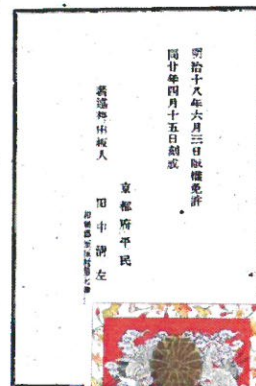 明治十八年六月三日版權免許
同廿年四月十五日刻成
裝釘幷出板人
京都府平民
田中淸左